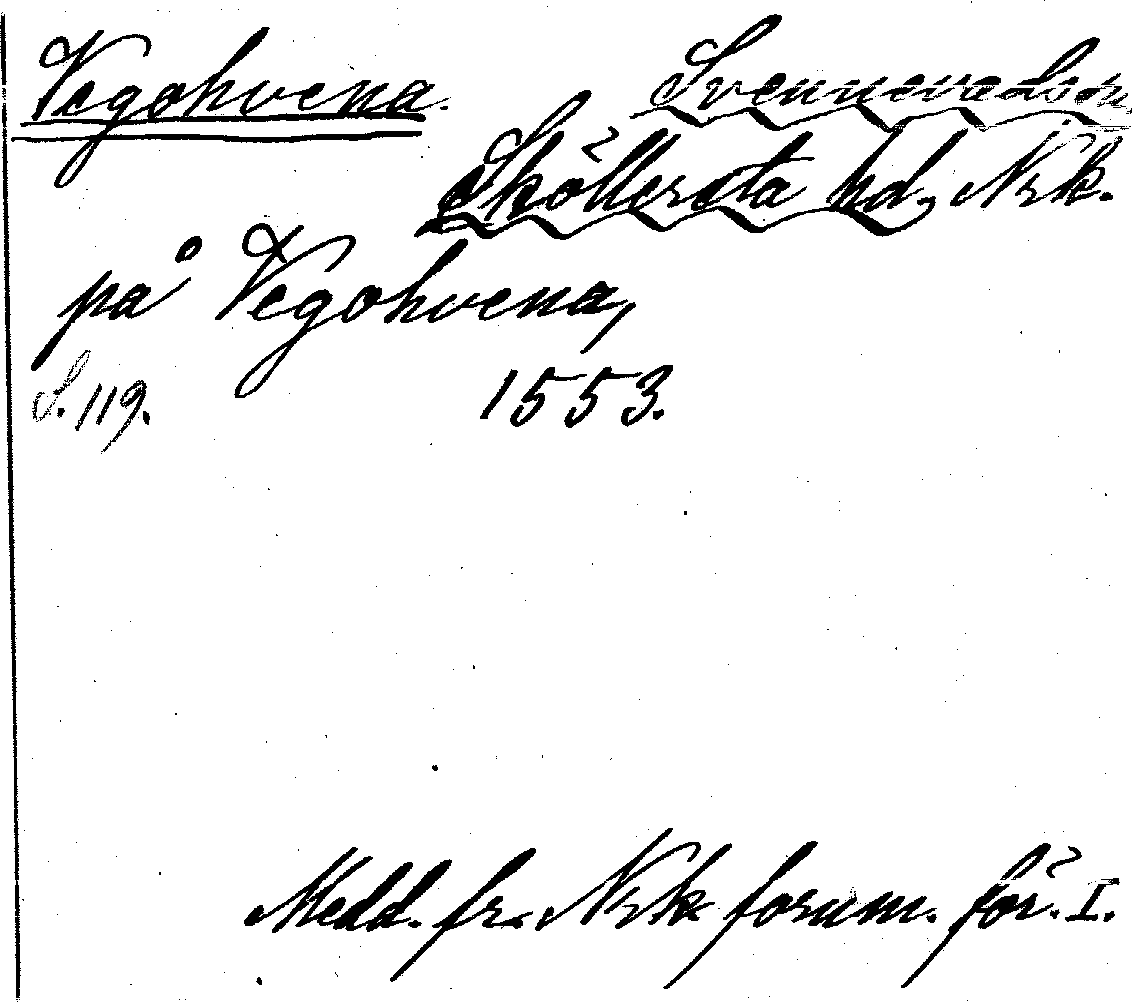 Vegohvena. Svennevads sn,
Sköllersta hd, Nrk.
på Vegohvena,
S. 119. 1553.
Medd. fr. Nrk fornm. för. I.